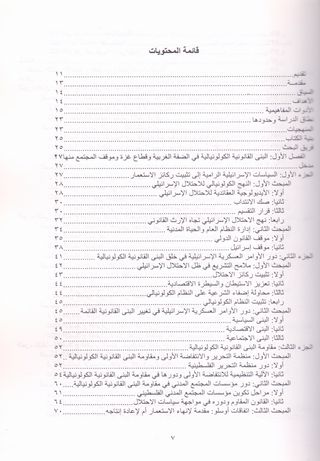 قائمة المحتويات
تقديم ١١
مقدمة ١٣
السياق ١٤
الأهداف ١٤
الأدوات المفاهيمية ١٥
نطاق الدراسة وحدودها ٢٣
المنهجيات ٢٣
بنية الكتاب ٢٥
فريق البحث ٢٥
الفصل الأول: البنى القانونية الكولونيالية في الضفة الغربية وقطاع غزة وموقف المجتمع منها ٢٧
مدخل ٢٧
الجزء الأول: السياسات الإسرائيلية الرامية إلى تثبيت ركائز الاستعمار ٢٧
المبحث الأول: النهج الكولونيالي للاحتلال الإسرائيلي ٢٨
أولا: الأيديولوجية العقائدية للاحتلال الإسرائيلي ٢٨
ثانيا: صك الانتداب ٣٠
ثالثا: قرار التقسيم ٣٠
رابعا: نهج الاحتلال الإسرائيلي تجاه الإرث القانوني ٣٢
المبحث الثاني: إدارة النظام العام والحياة المدنية ٣٤
أولا: موقف القانون الدولي ٣٥
ثانيا: موقف إسرائيل ٣٨
الجزء الثاني: دور الأوامر العسكرية الإسرائيلية في خلق البنى القانونية الكولونيالية ٤١
المبحث الأول: ملامح التشريع في ظل الاحتلال الإسرائيلي ٤٢
أولا: تثبيت ركائز الاحتلال ٤٣
ثانيا: تعزيز الاستيطان والسيطرة الاقتصادية
ثالثا: محاولة إضفاء الشرعية على النظام الكولونيالي ٤٤
رابعا: تثبيت النظام الكولونيالي
المبحث الثاني: دور الأوامر العسكرية الإسرائيلية في تغيير البنى القانونية القائمة ٤٥
أولا: البنى السياسية ٤٥
ثانيا: البنى الاقتصادية ٤٩
ثالثا: البنى الاجتماعية ٥٠
الجزء الثالث: مقاومة البنى القانونية الكولونيالية ٥٢
المبحث الأول: منظمة التحرير والانتفاضة الأولى ومقاومة البنى القانونية الكولونيالية ٥٢
أولا: دور منظمة التحرير الفلسطينية ٥٣
ثانيا: الآلية التنظيمية للانتفاضة الأولى ودورها في مقاومة البنى القانونية الكولونيالية ٥٤
المبحث الثاني: دور مؤسسات المجتمع المدني في مقاومة البنى القانونية الكولونيالية ٦٠
أولا: مراحل تكوين مؤسسات المجتمع المدني الفلسطيني ٦١
ثانيا: القانون المقاوم ودوره في مواجهة سياسات الاحتلال ٦٤
المبحث الثالث: اتفاقات أوسلو: مقدمة لإنهاء الاستعمار أم لإعادة إنتاجه ٧٠
٧